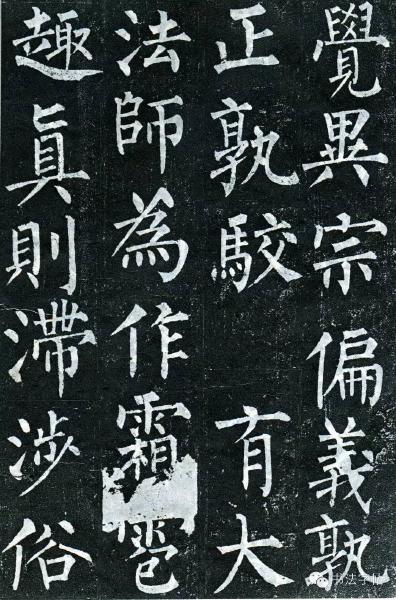 覺異宗偏義孰
正孰駮有大
法師為作霜雹
趣眞則滯涉俗
书法字帖